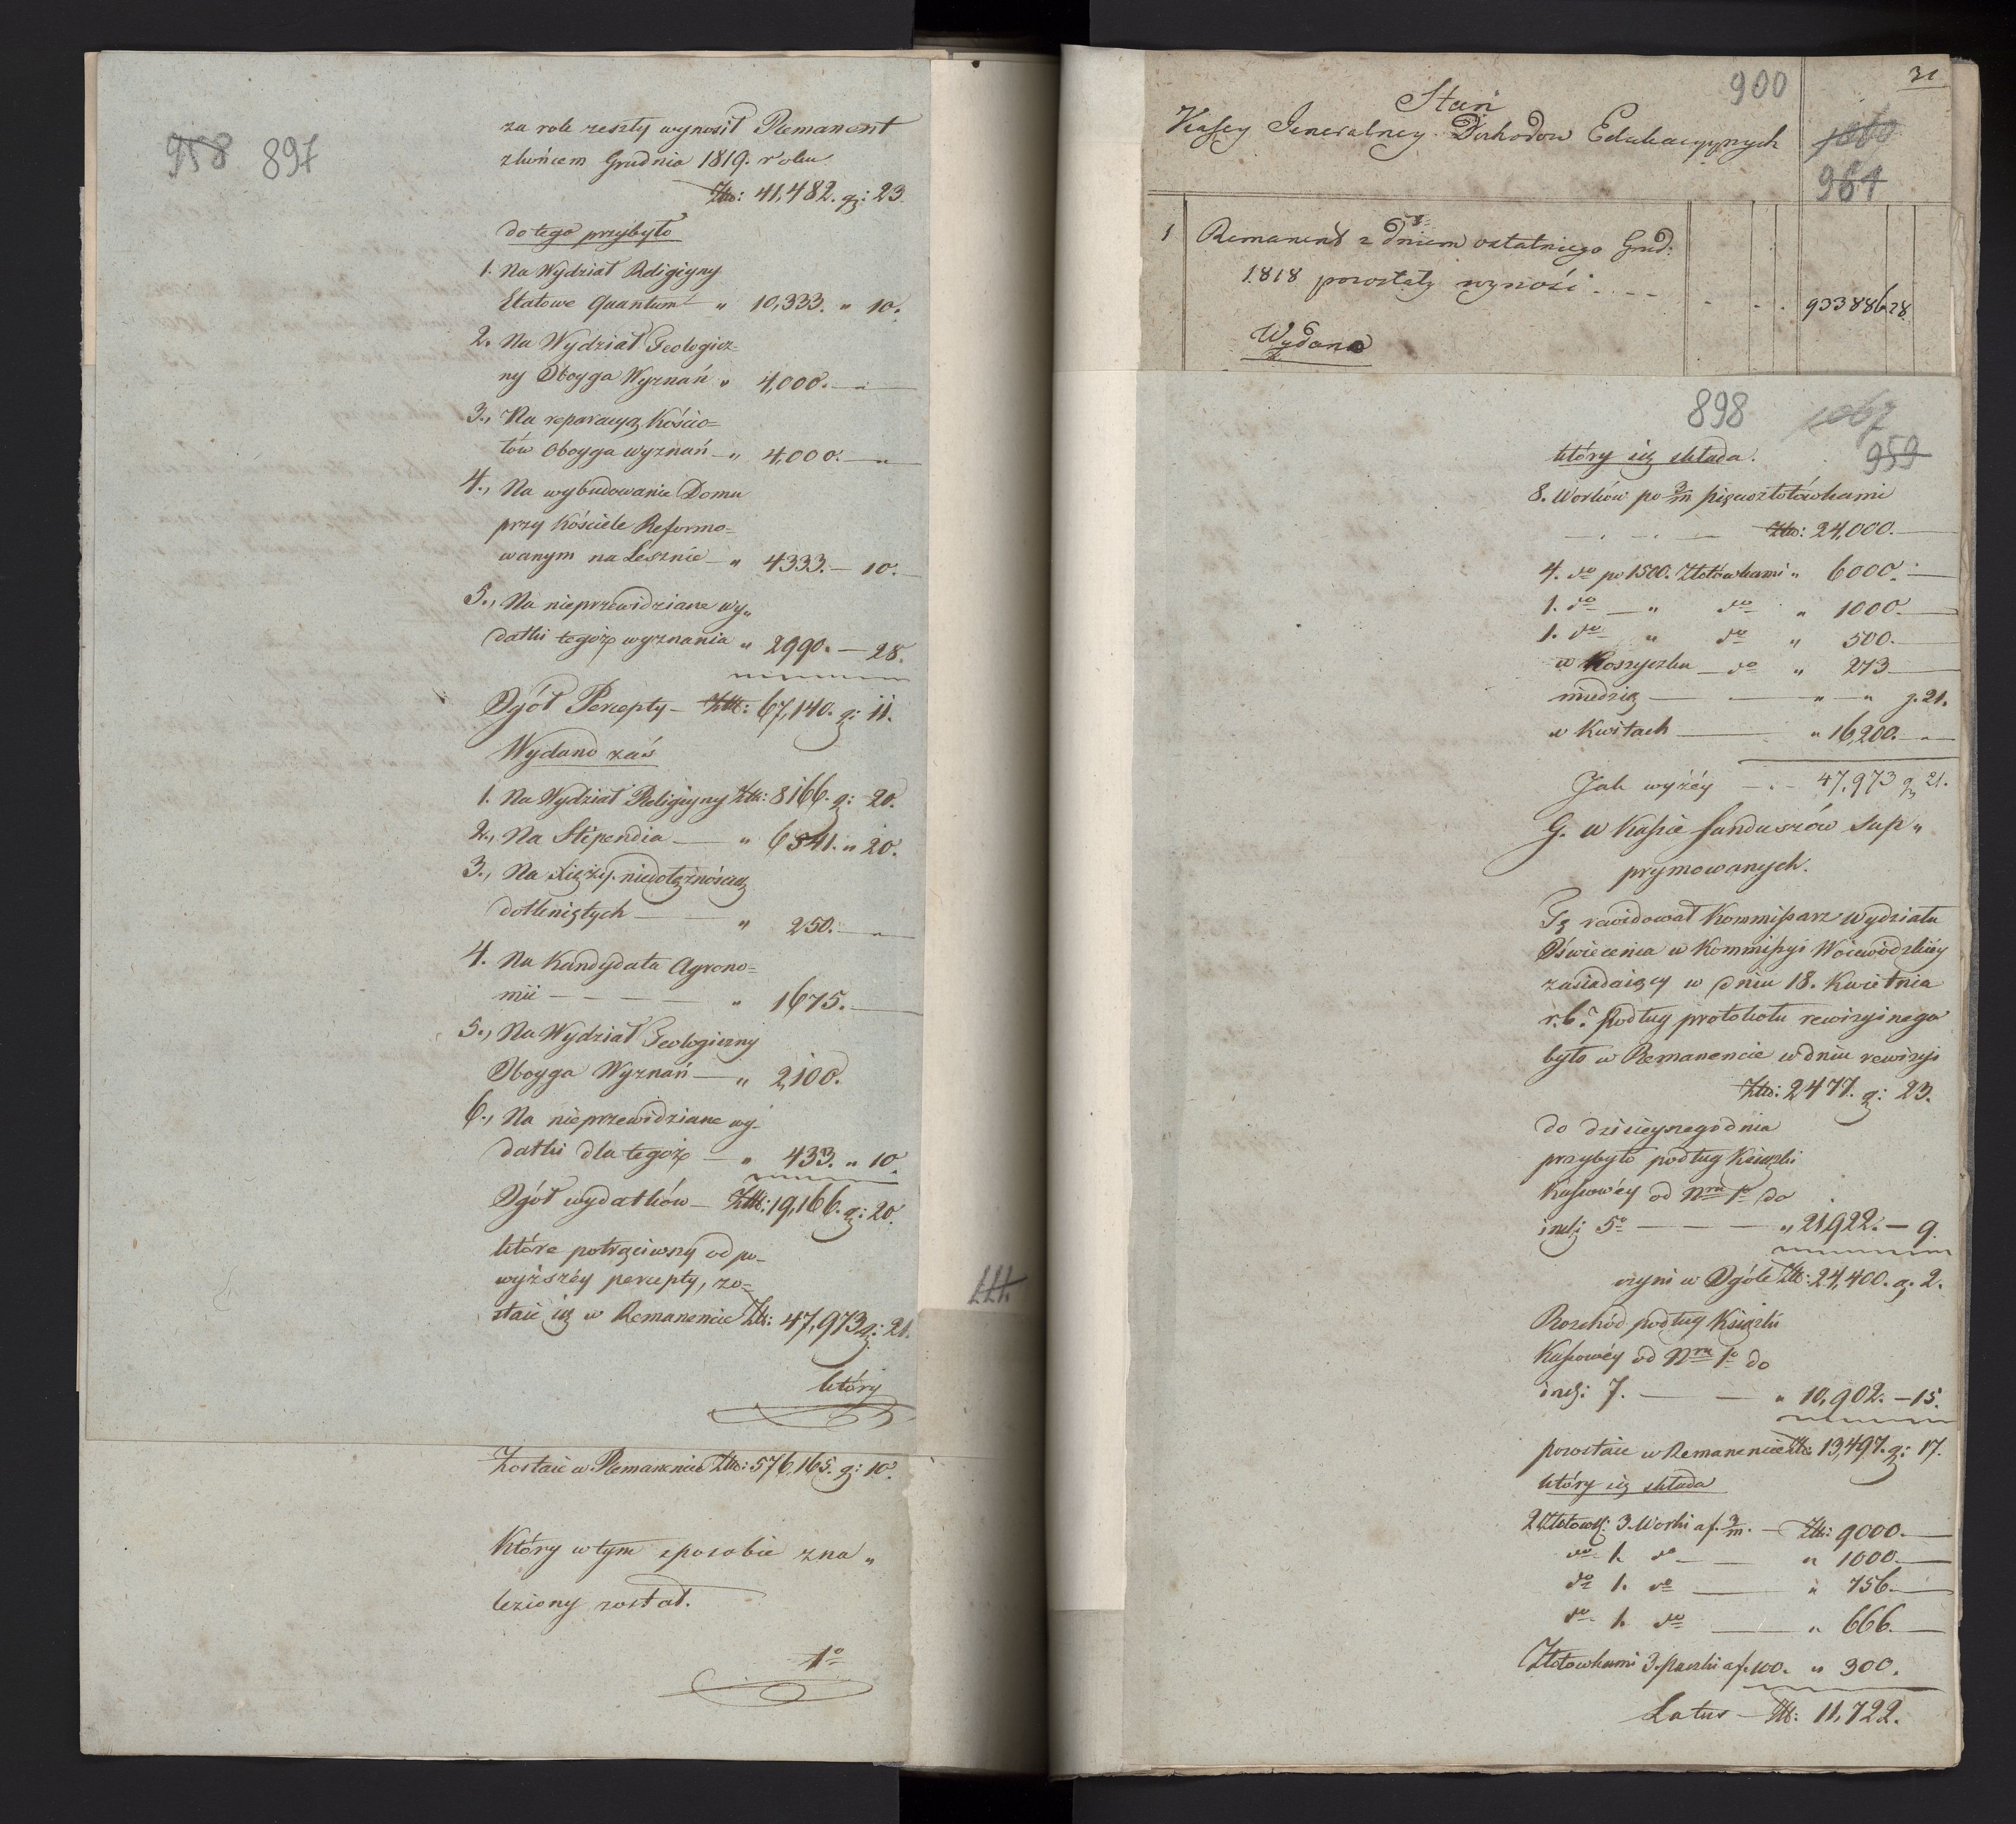 958 897
za rok zeszły wynosił Remanent
z końcem Grudnia 1819. roku
Złto: 41,482. gr: 23.
do tego przybyło
1. Na Wydział Religiyny
Etatowe Quantum „ 10,333. „ 10.
2. Na Wydział Teologicz=
ny Oboyga Wyznań „ 4,000. — „ —
3., Na reparacyą Kościo=
łów Oboyga wyznań — „ 4,000. — „ —
4., Na wybudowanie Domu
przy Kościele Reformo=
wanym na Lesznie — „ 4333. — 10. —
5., Na nieprzewidziane wy„
datki tegoż wyznania „ 2990. — 28.
Ogół Percepty — Złto: 67,140. gr: 11.
Wydano zaś
1. Na Wydział Religiyny Złt: 8166. gr: 20.
2., Na Stipendia — „ 6541. „ 20.
3., Na Xięży niedołężnością
dotkniętych — „ 250. — „ —
4. Na Kandydata Agrono=
mii — — — — „ 1675. —
5., Na Wydział Teologiczny
Oboyga Wyznań — „ 2,100.
6., Na nieprzewidziane wy-
datki dla tegoż — „ 433. „ 10.
Ogół wydatków — Złt: 19,166. gr: 20.
które potrąciwszy od po-
wyższéy percepty, zo-
staie się w Remanencie Złt: 47,973 gr: 21.
który
Zostaie w Remanencie Złto: 576,165. gr: 10.
Który w tym sposobie zna„
leziony został.
1º
31
900
Stan
Kassy Generalney Dochodow Edukacyynych
1060
961
1 Remanent z dniem ostatniego Grud:
1818 pozostały wynosi . . . 933886 28.
Wydano
898 1067
959
który się składa.
8. Worków po 3/m pięciozłotówkami
— . — . — Złto: 24,000. —
4. dto po 1500. Złotówkami „ 6000. —
1. dto — „ dto „ 1000. —
1. dto „ dto „ 500. —
w Koszyczku — dto „ 273 —
miedzią — — „ — „ g. 21.
w Kwitach — „ 16,200. — „
Jak wyżéy — . — 47,973 gr 21.
G. w Kassie funduszów sup„
prymowanych.
Tę rewidował Kommissarz wydziału
Oświecenia w Kommissyi Woiewódzkiéy
zasiadaiący w dniu 18. Kwietnia
r.b. Podług protokołu rewizyinego
było w Remanencie w dniu rewizyi
Złto: 2477. gr: 23.
do dzisieyszego dnia
przybyło podług Ksiązki
Kassowéy od Nru 1º do
incl: 5º — — — „ 21,922. — 9.
czyni w Ogóle Złt: 24,400. g. 2.
Rozchód podług Ksiązki
Kassowéy od Nru 1º do
incl: 7. — — „ 10,902. — 15.
pozostaie w Remanencie Złt: 13,497. gr: 17.
który się składa
2 Złotowk: 3. Worki a f. 3/m. — Złt: 9000. —
dto 1. dto — — „ 1000. —
dto 1. dto — „ 756. —
dto 1. dto — „ 666. —
Złotowkami 3. paczki a f. 100. „ 300.
Latus — Złt: 11,722.